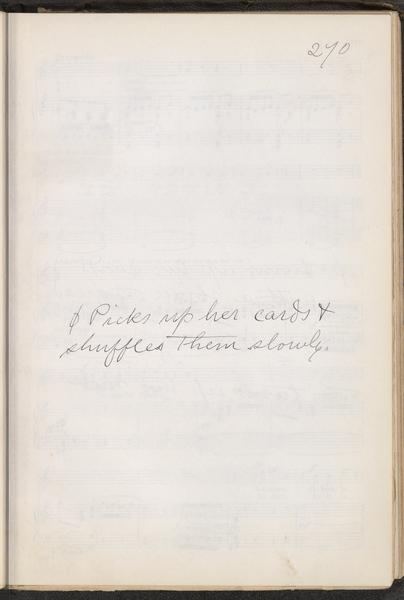 270
∮ Picks up her cards &
shuffles them slowly.